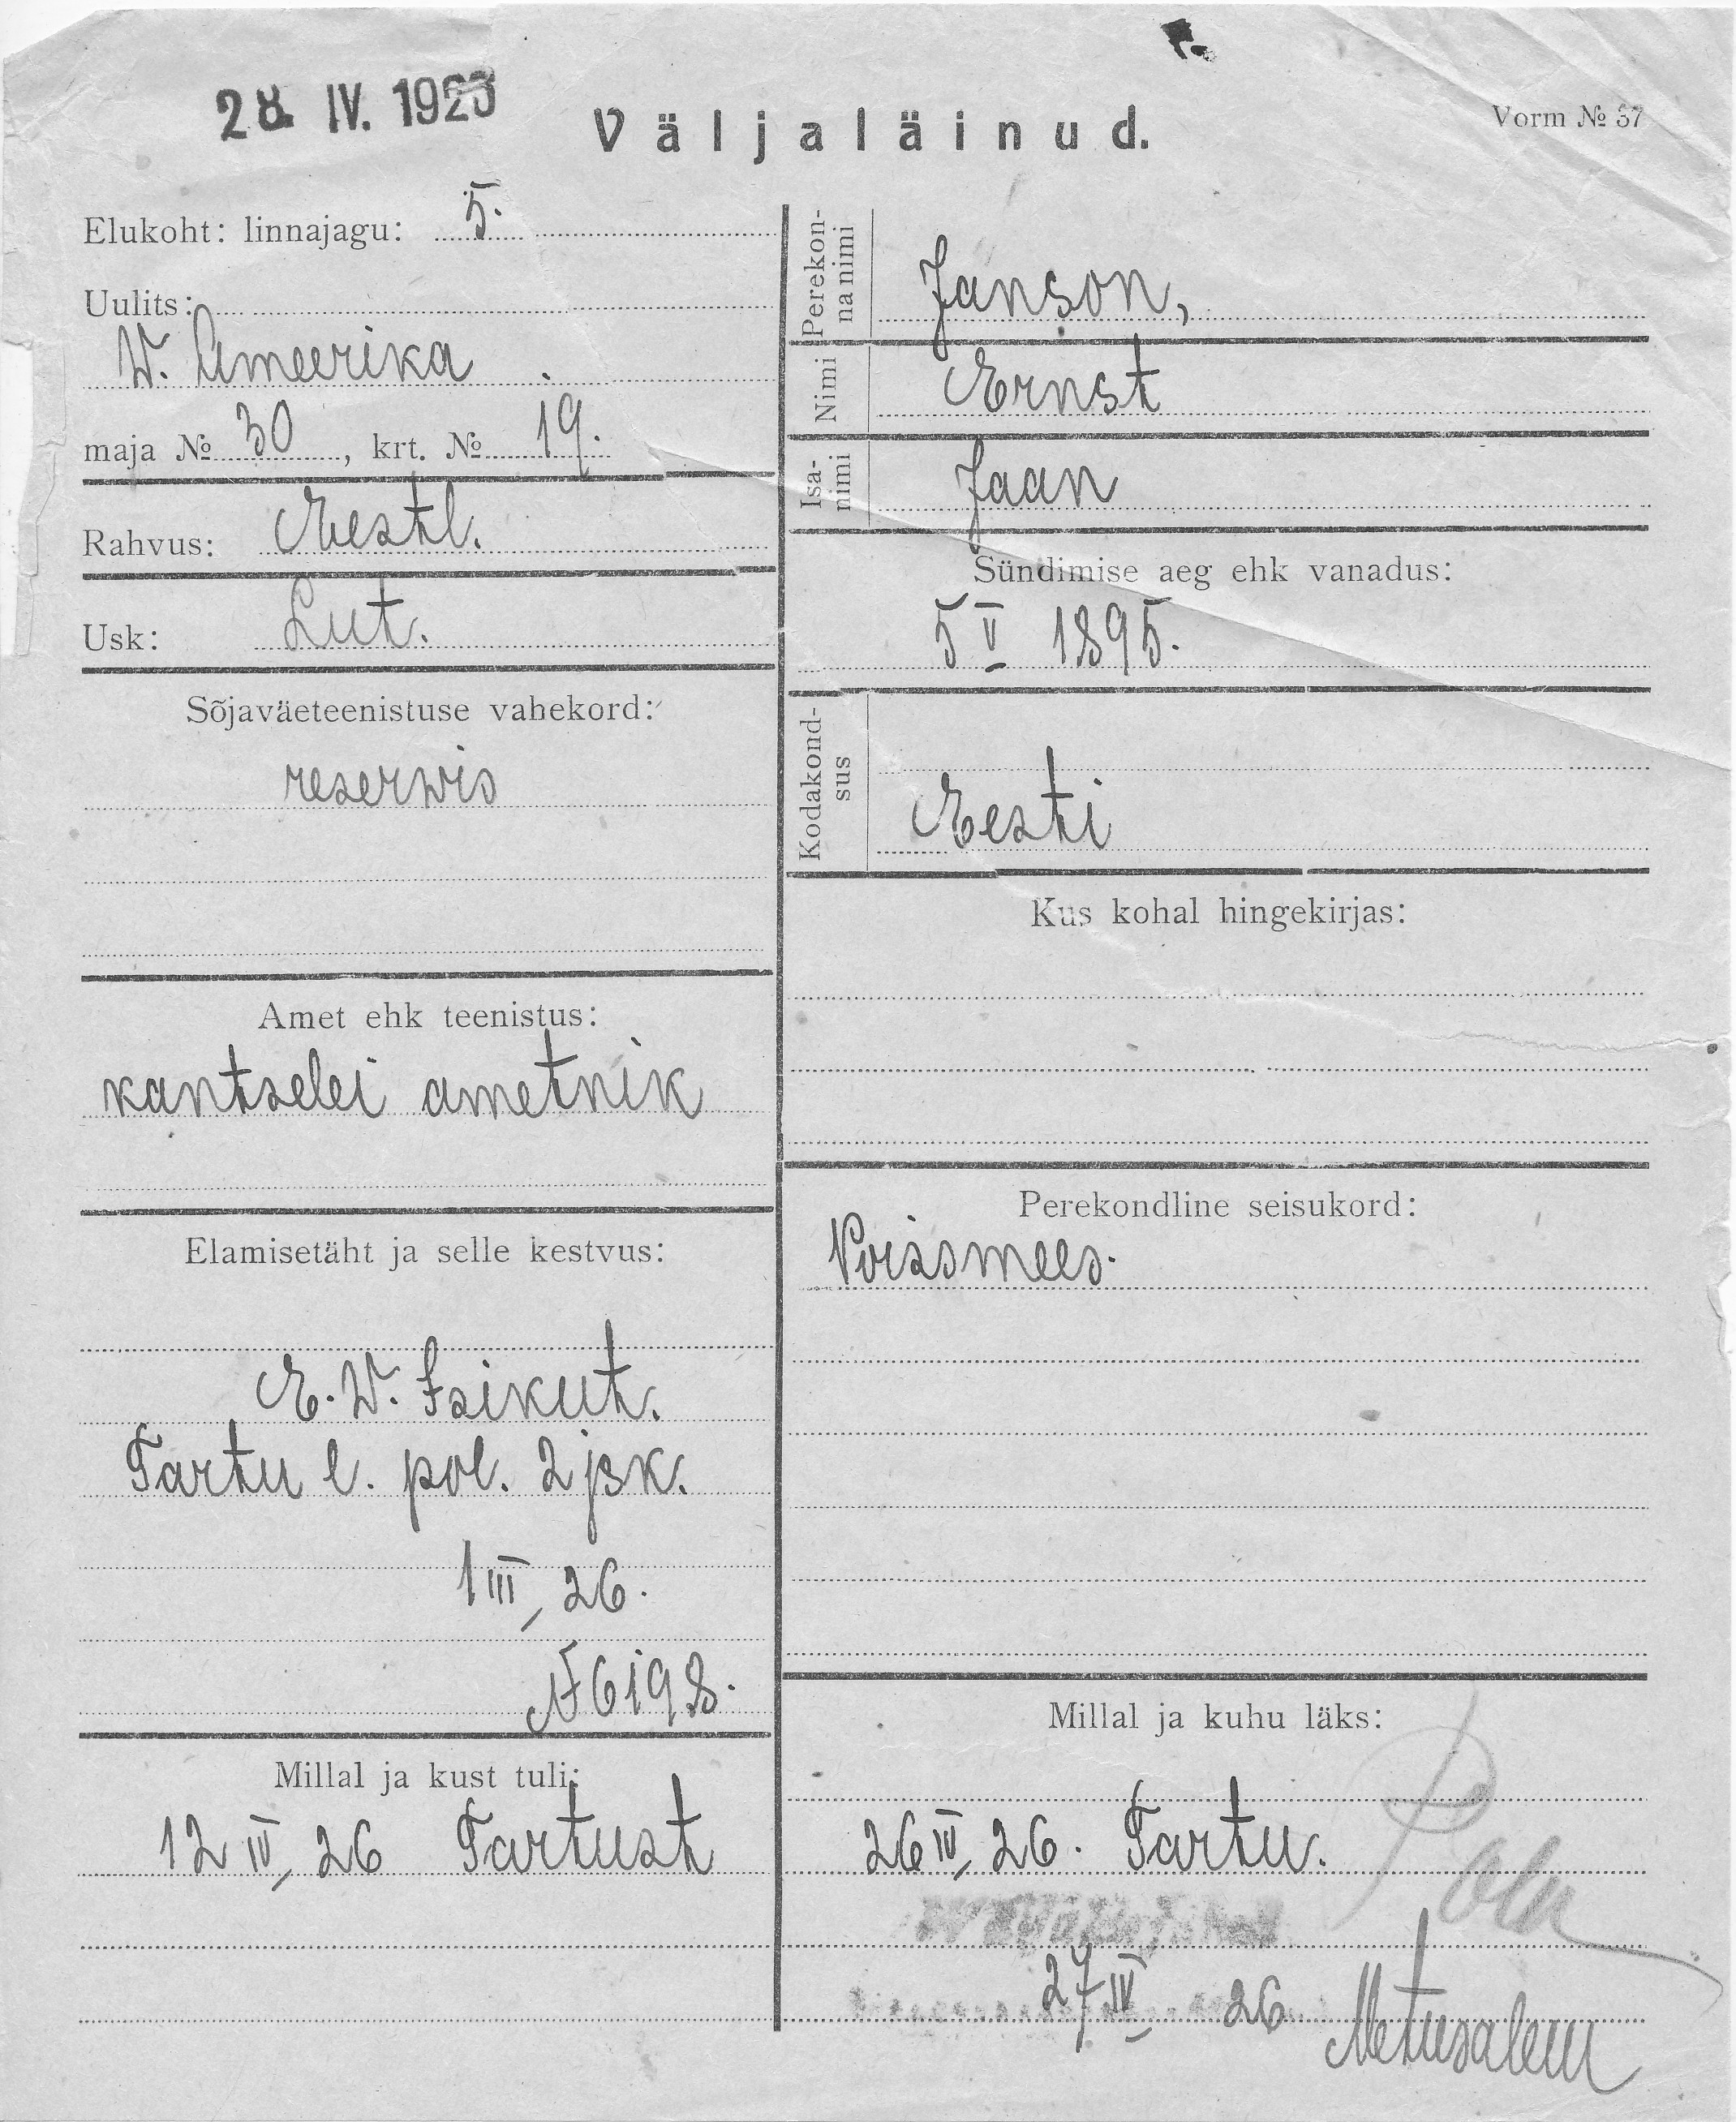 28. IV. 1926
Väljaläinud.
Vorm № 37
Elukoht: linnajagu: 5.
Uulits:
W. Ameerika
maja № 30, krt. № 19.
Rahvus: Eestl.
Usk: Lut.
Sõjaväeteenistuse vahekord:
reserwis
Amet ehk teenistus:
kantselei ametnik
Elamisetäht ja selle kestvus:
E. W. Isikut.
Tartu l. pol. 2 jsk.
1 III 26.
№ 6198.
Millal ja kust tuli:
12 IV 26 Tartust
Perekonnanimi Janson,
Nimi Ernst
Isanimi Jaan
Sündimise aeg ehk vanadus:
5 V 1895.
Kodakondsus
Eesti
Kus kohal hingekirjas:
Perekondline seisukord:
Poissmees.
Millal ja kuhu läks:
26 IV 26. Tartu.
27 IV 26 Metusalem